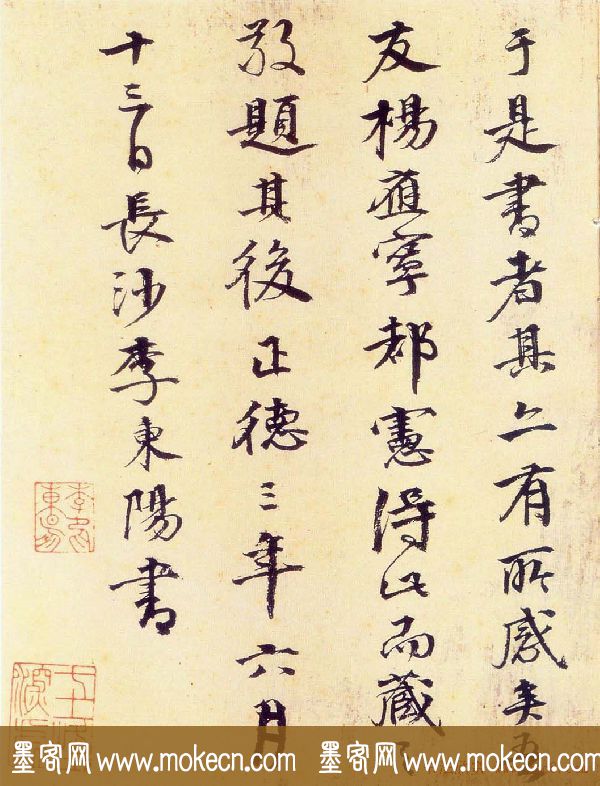 于是書者其亦有所感矣吾
友楊應寧都憲得此而藏
敬題其後正德三年六月
十三日長沙李東陽書
墨客网 www.mokecn.com 墨客网 www.mokecn.com